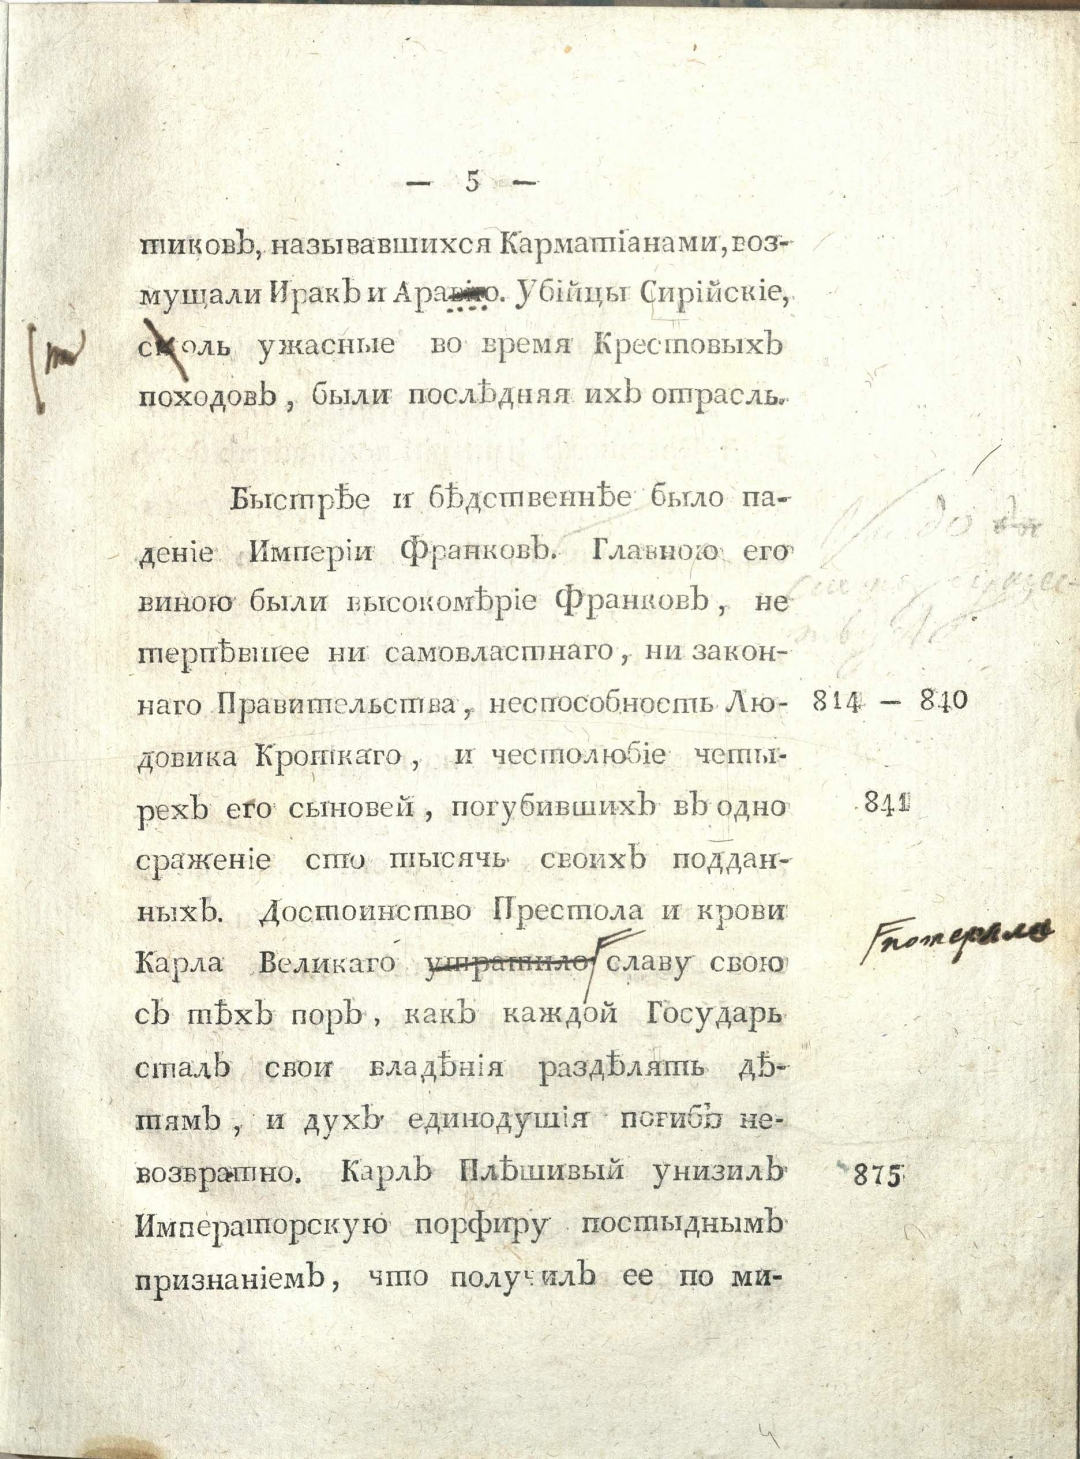 — 5 —
тиковъ, называвшихся Карматіанами, воз-
мущали Иракъ и Аравію. Убійцы Сирійскіе,
[т
сколь ужасные во время Крестовыхъ
походовъ, были послѣдняя ихъ отрасль.
Быстрѣе и бѣдственнѣе было па-
деніе Имперіи Франковъ. Главною его
виною были высокомѣріе Франковъ, не
терпѣвшее ни самовластнаго, ни закон-
наго Правительства, неспособность Лю- 814 — 840
довика Кроткаго, и честолюбіе четы-
рехъ его сыновей, погубившихъ въ одно 841
сраженіе сто тысячь своихъ поддан-
ныхъ. Достоинство Престола и крови
Карла Великаго утратило славу свою потеряло
съ тѣхъ поръ, какъ каждой Государь
сталъ свои владѣнія раздѣлять дѣ-
тямъ, и духъ единодушія погибъ не-
возвратно. Карлъ Плѣшивый унизилъ 875
Императорскую порфиру постыднымъ
признаніемъ, что получилъ ее по ми-